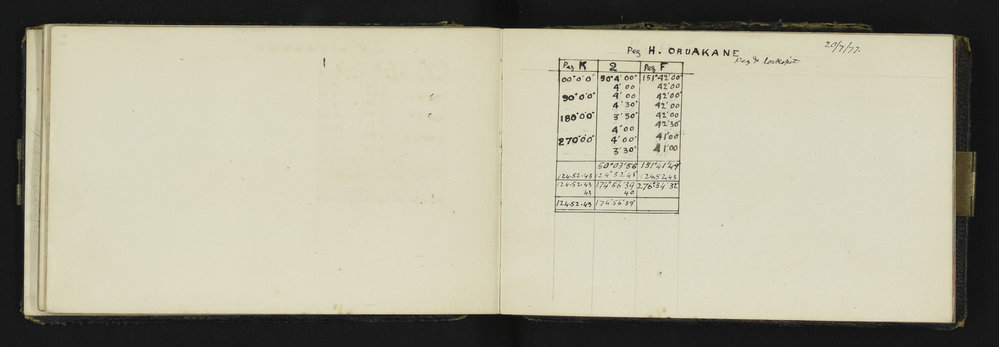 Peg H. ORUAKANE 20/7/77.
Peg & Lockspit
Peg K 2 Peg F
00°0'0" 50°4'00" 151°42'00"
4'00 42'00
90°0'0" 4'00 42'00
4'30" 42'00
180°0'0" 3'30" 42'00
4'00 42'30"
270°00'0" 4'00" 41'00"
3'30" 41'00
50°03'56 151°41'49
124.52.43 124°52'43" 124.52.43
124.52.43 174°56'39 276°34'32
43 40
124.52.43 174°56'39"